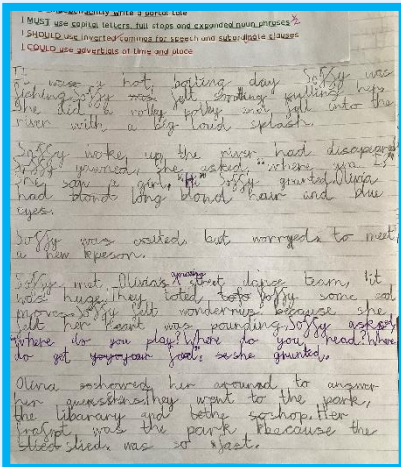 I MUST use capital letters, full stops and expanded noun phrases
I SHOULD use inverted commas for speech and subordinate clauses
I COULD use adverbials of time and place
It was a hot, boiling day Soffy was
fishing. Soffy felt pulling hips
She did a rolly polly and fell into the
river with a big loud splash.
Soffy woke up the river had disapeard
Soffy yawned, she asked, "where am I?"
She saw a girl, Soffy grunted. Olivia
had long blond hair and blue
eyes.
Soffy was but worryed to meet
a new person.
Soffy met Olivia's street dance team, it
was huge. they Soffy some cool
moves. Soffy felt wondernus because she
felt her heart was pounding. Soffy asks,
"Where do you play? Where do you read? Where
do get your food?" she grunted.
Olivia showered her around to answer
her They went to the park,
the libarary and the shop. Her
was the park because the
slied was so fast.